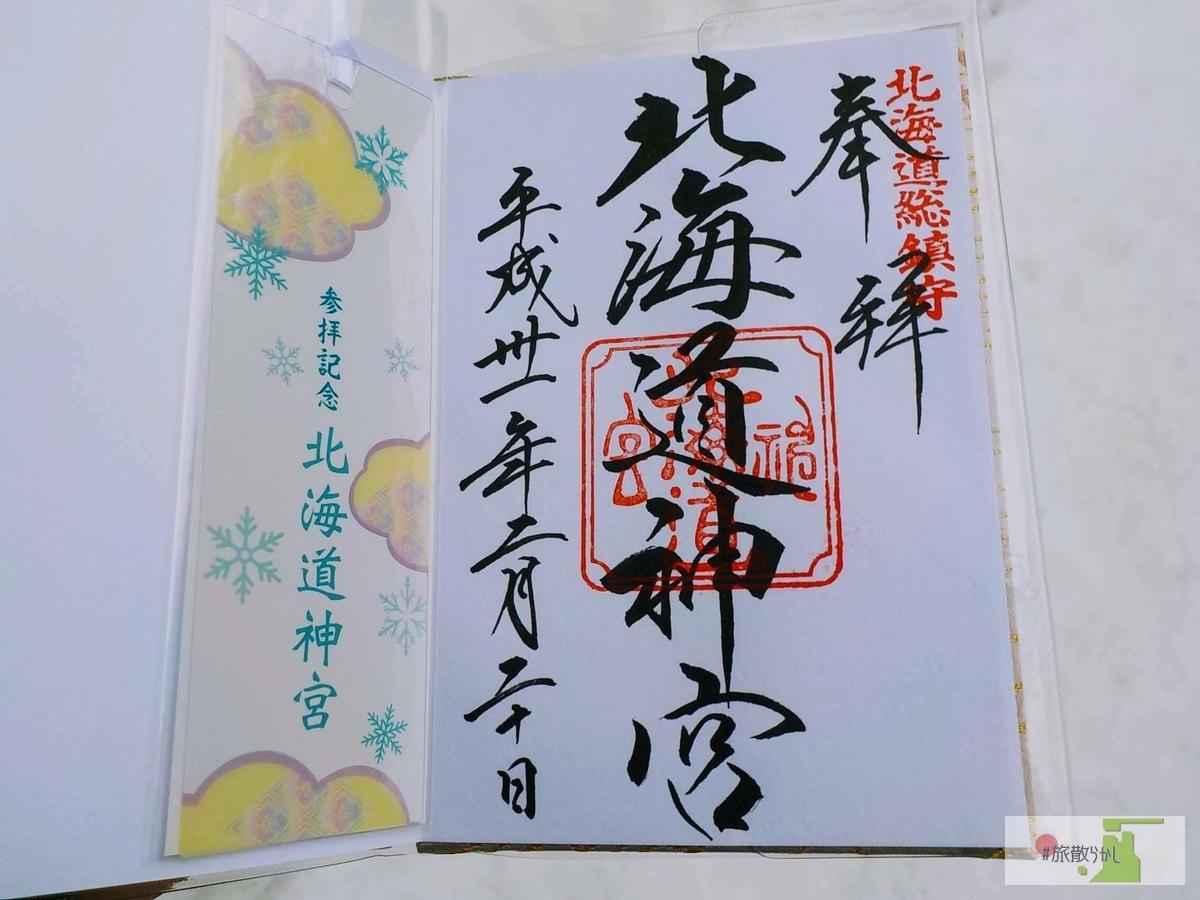 北海道総鎮守
奉拝
北海道神宮
平成卅一年二月二十日
北海道神宮
参拝記念 北海道神宮
#旅散らかし